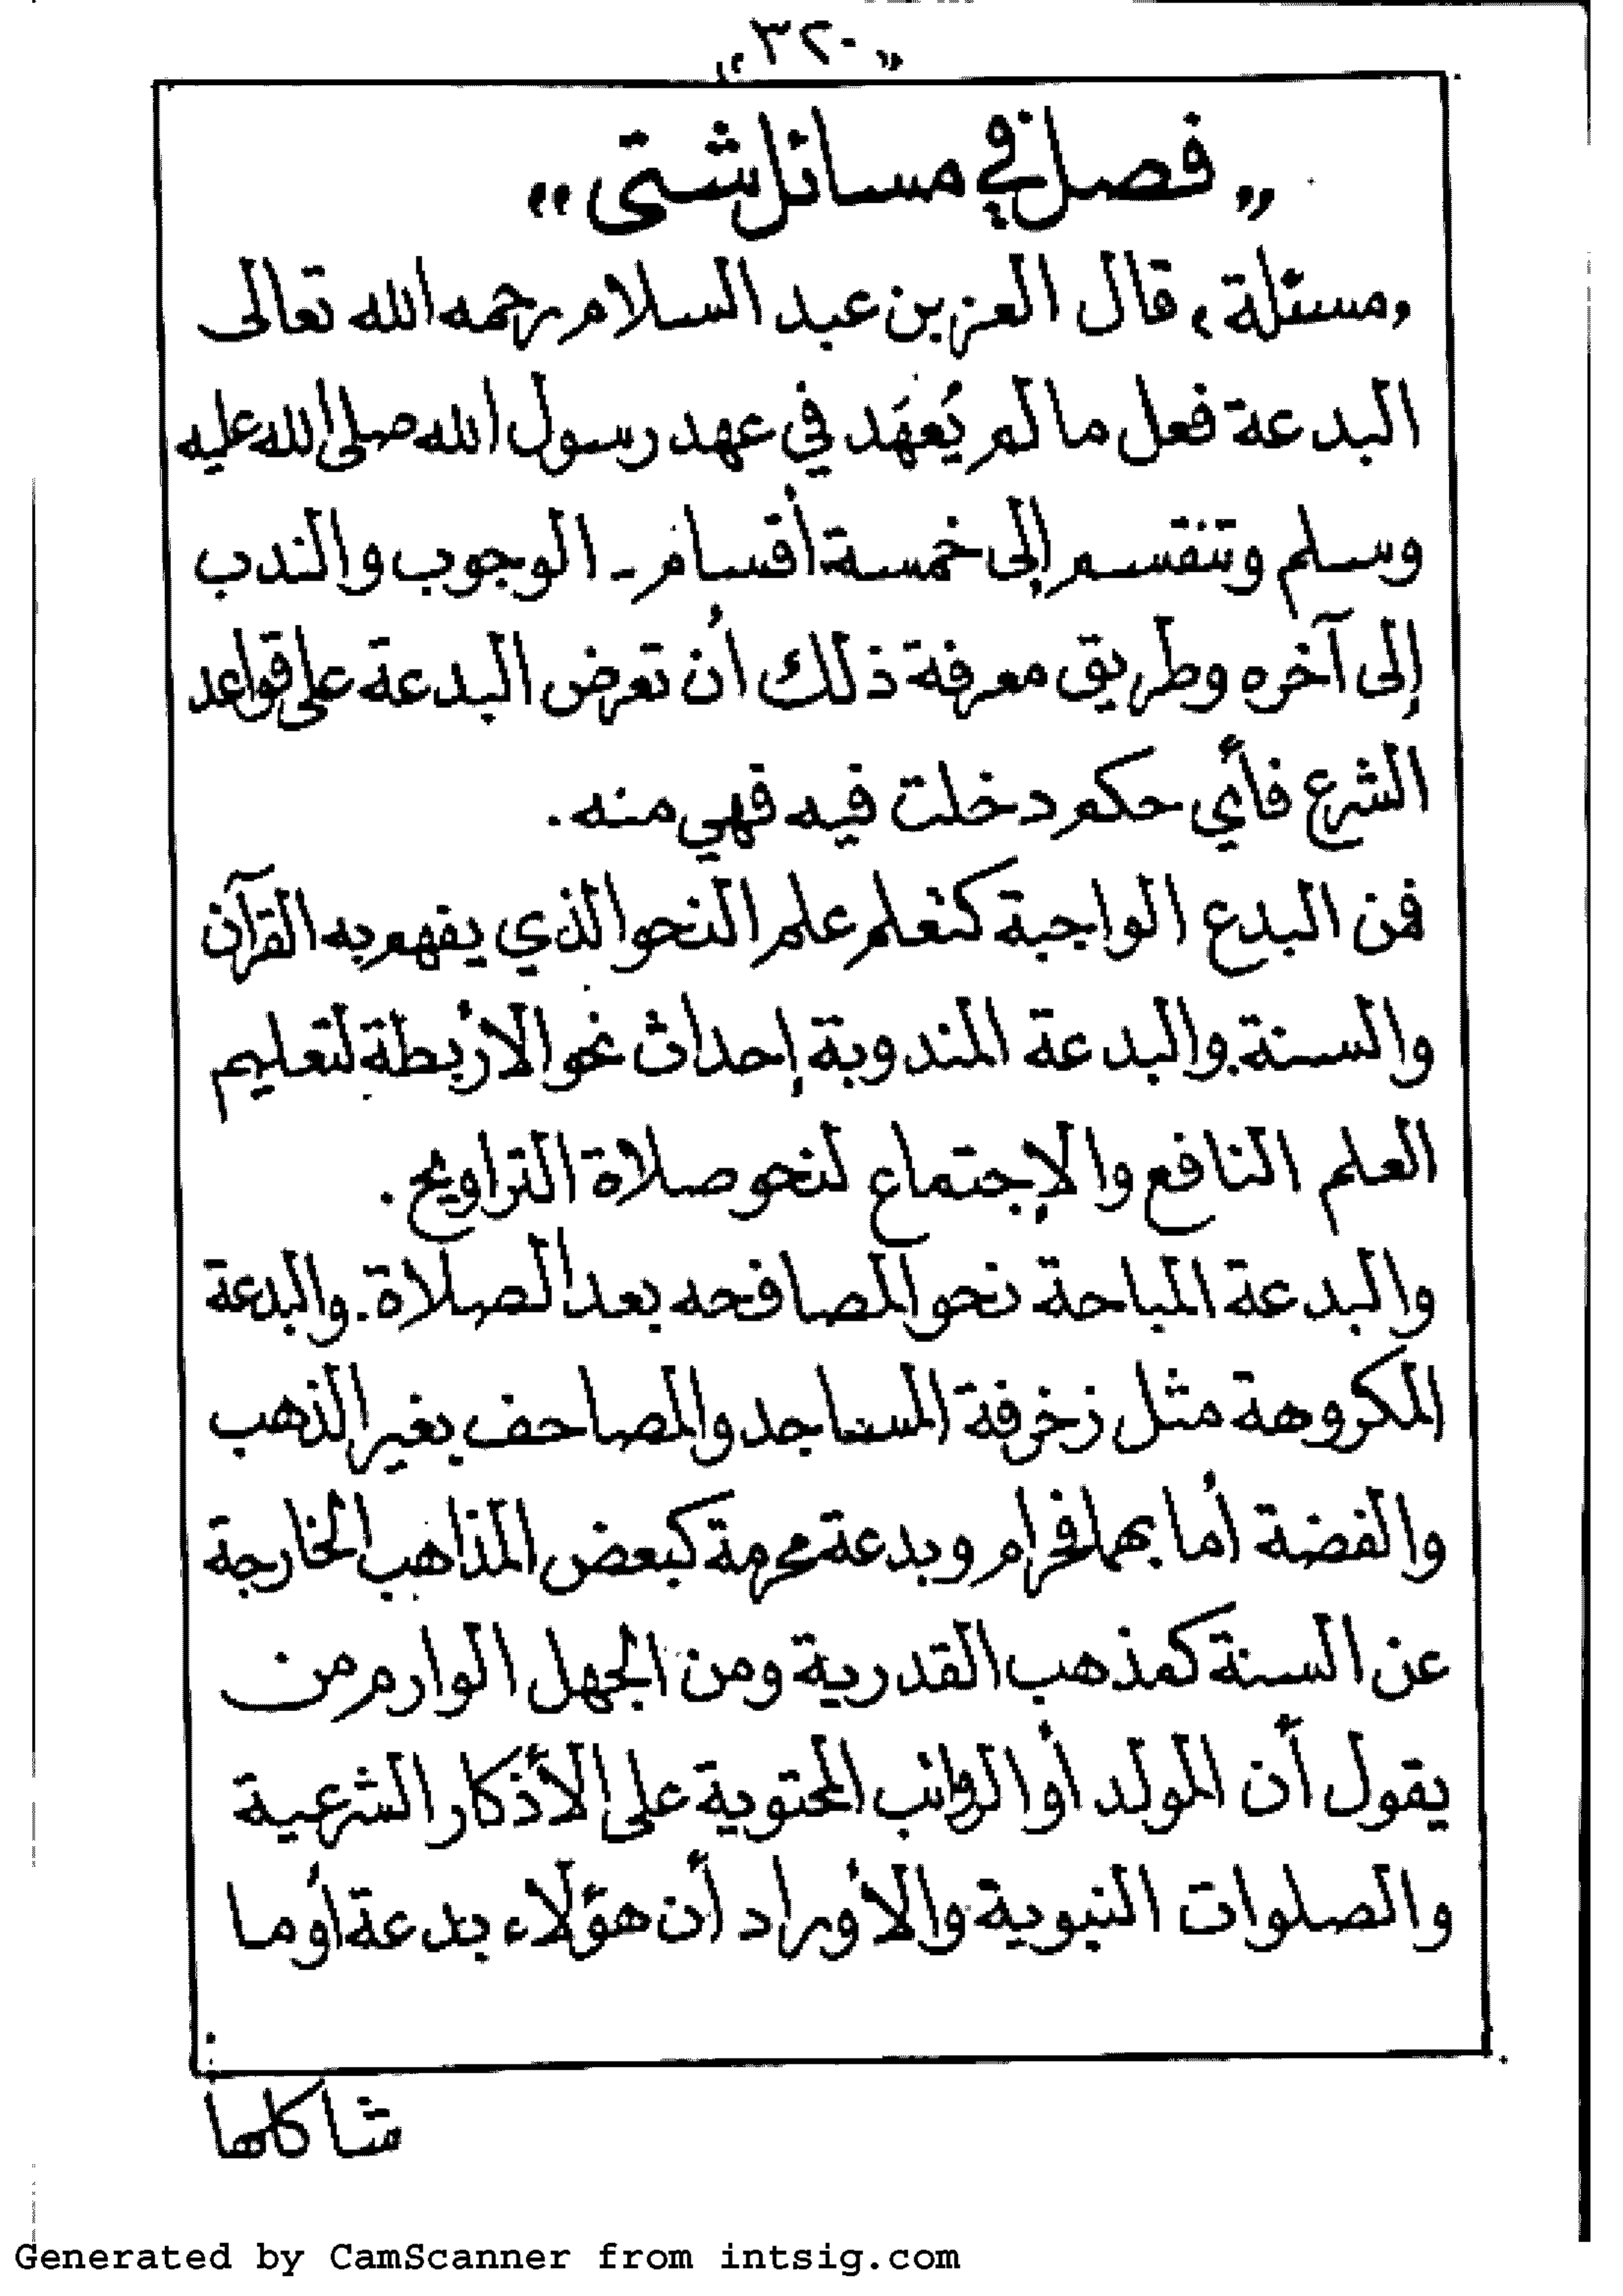 «٣٢٠»
„ فصل في مسائل شتى „
«مسئلة» قال العز بن عبد السلام رحمه الله تعالى
البدعة فعل ما لم يُعهَد في عهد رسول الله صلى الله عليه
وسلم وتنقسم إلى خمسة أقسام - الوجوب والندب
إلى آخره وطريق معرفة ذلك أن تعرض البدعة على قواعد
الشرع فأي حكم دخلت فيه فهي منه .
فمن البدع الواجبة كتعلم علم النحو الذي يفهم به القرآن
والسنة. والبدعة المندوبة إحداث نحو الأربطة لتعليم
العلم النافع والإجتماع لنحو صلاة التراويح .
والبدعة المباحة نحو المصافحه بعد الصلاة. والبدعة
المكروهة مثل زخرفة المساجد والمصاحف بغير الذهب
والفضة أما بهما فحرام وبدعة محرمة كبعض المذاهب الخارجة
عن السنة كمذهب القدرية ومن الجهل الوارم من
يقول أن المولد أو الرواتب المحتوية على الأذكار الشرعية
والصلوات النبوية والأوراد أن هؤلاء بدعة أو ما
شاكلها
Generated by CamScanner from intsig.com